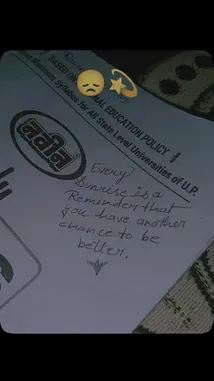 BASED ON NATIONAL EDUCATION POLICY
Syllabus for All State Level Universities of U.P.
नवीन
Every
Sunrise is a
Reminder that
you have another
chance to be
better.